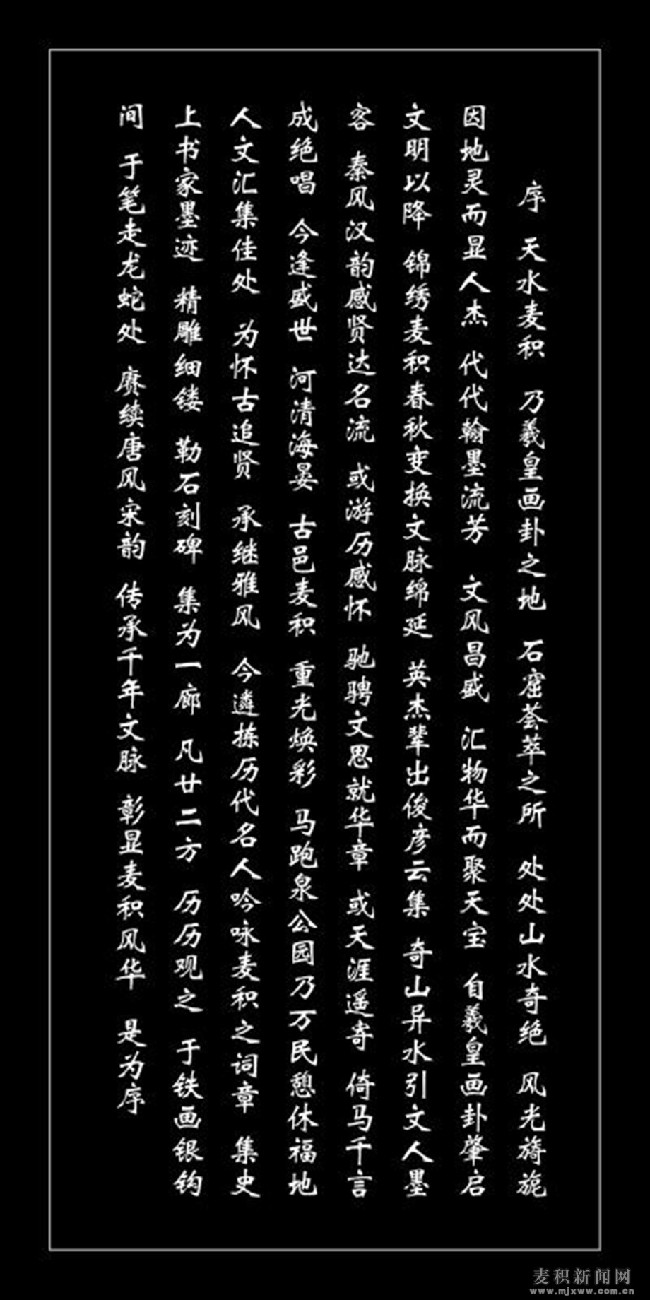 序 天水麦积 乃羲皇画卦之地 石窟荟萃之所 处处山水奇绝 风光旖旎
因地灵而显人杰 代代翰墨流芳 文风昌盛 汇物华而聚天宝 自羲皇画卦肇启
文明以降 锦绣麦积春秋变换文脉绵延 英杰辈出俊彦云集 奇山异水引文人墨
客 秦风汉韵感贤达名流 或游历感怀 驰骋文思就华章 或天涯遥寄 倚马千言
成绝唱 今逢盛世 河清海晏 古邑麦积 重光焕彩 马跑泉公园乃万民憩休福地
人文汇集佳处 为怀古追贤 承继雅风 今遴拣历代名人吟咏麦积之词章 集史
上书家墨迹 精雕细镂 勒石刻碑 集为一廊 凡廿二方 历历观之 于铁画银钩
间 于笔走龙蛇处 赓续唐风宋韵 传承千年文脉 彰显麦积风华 是为序
麦积新闻网
www.mjxww.com.cn